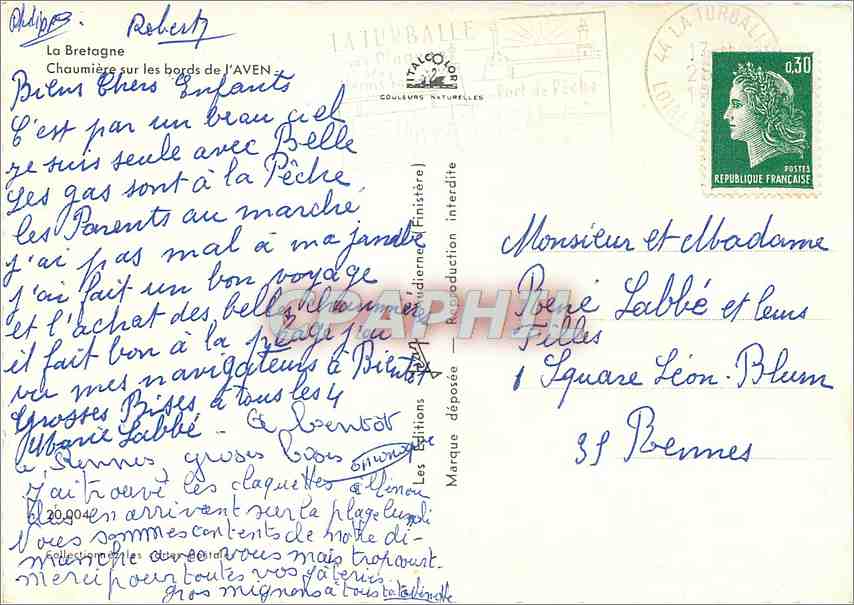 Robert
La Bretagne
Chaumière sur les bords de l'AVEN
Biens Chers Enfants
C'est par un beau ciel
je suis seule avec Belle
Les gas sont à la Pêche
les Parents au marché
j'ai pas mal à ma jambe
j'ai fait un bon voyage
et l'achat des belles chaumières
il fait bon à la plage j'ai
vu mes navigateurs à Bientôt
Grosses Bises à tous les 4
Marie Labbé - A bientôt
à Rennes, groses bises
J'ai trouvé les claquettes
en arrivent sur la plage lundi
Nous sommes contents de notre di-
manche avec vous mais trop court.
merci pour toutes vos gâteries.
gros mignons à tous
20.004
Collectionnez les cartes postales
ITALCOLOR
COULEURS NATURELLES
LA TURBALLE
Port de Pêche
44 LA TURBALLE
LOIRE ATL
0,30
POSTES
REPUBLIQUE FRANÇAISE
Les Editions Audierne (Finistère)
Marque déposée — Reproduction interdite
Monsieur et Madame
René Labbé et leurs
Filles
1 Square Léon-Blum
35 Rennes
CPAPHIL